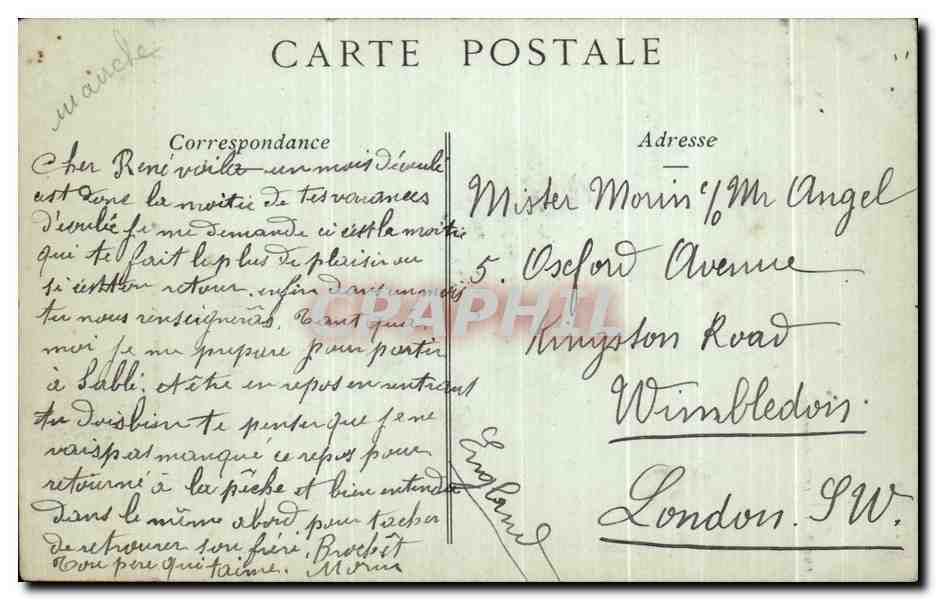 manche
CARTE POSTALE
Correspondance
Cher René voila un mois d'écoulé
est donc la moitie de tes vacances
d'écoulée je me demande ci c'est la moitie
qui te fait le plus de plaisir ou
si c'est ton retour. enfin dans un mois
tu nous renseigneras. Tant qu'a
moi je me prepare pour partir
à Sablé. et être en repos en rentrant
tu dois bien te penser que je ne
vais pas manqué ce repos pour
retourné à la pêche et bien entendu
dans le même abord pour tacher
de retrouver son fréré. Brochêt
Ton pere qui t'aime. Morin
Adresse
Mister Morin c/o Mr Angel
5. Oxford Avenue
Kingston Road
Wimbledon.
London. SW.
England
CPAPHIL